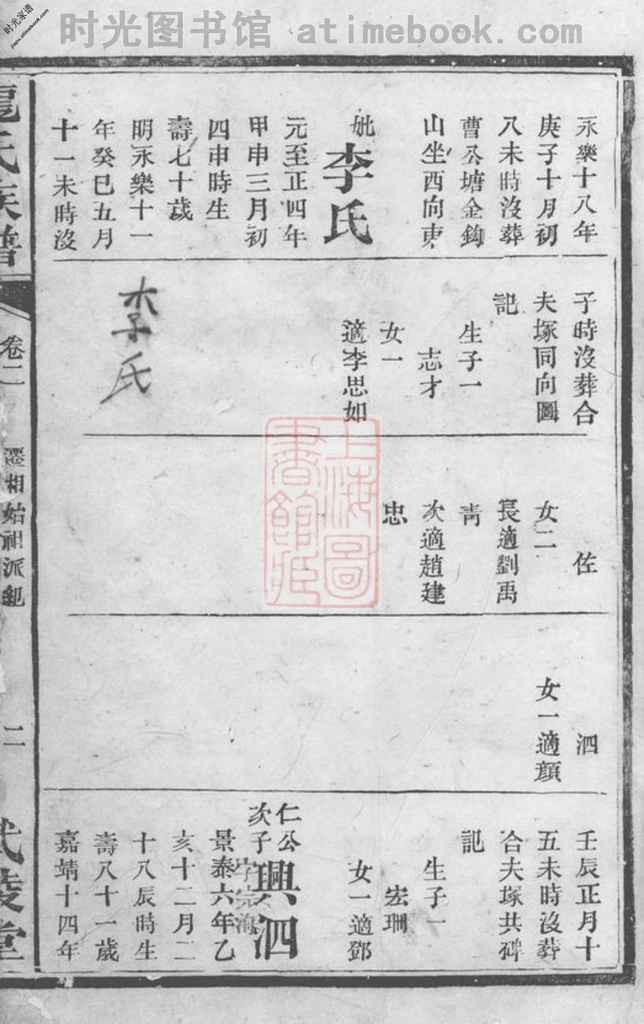 时光图书馆 atimebook.com
时光家谱
永樂十八年
庚子十月初
八未時沒葬
曹公塘金鈎
山坐西向東
妣李氏
元至正四年
甲申三月初
四申時生
壽七十歲
明永樂十一
年癸巳五月
十一未時沒
子時沒葬合
夫塚同向圖
記
生子一
志才
女一
適李思如
李氏
佐
女二
長適劉禹
青
次適趙建
忠
泗
女一適顏
壬辰正月十
五未時沒葬
合夫塚共碑
記
生子一
宏珊
女一適鄧
仁公
次子
興泗
景泰六年乙
亥十二月二
十八辰時生
壽八十一歲
嘉靖十四年
上海圖
書館藏
龍氏族譜
卷二
遷湘始祖派紀
二
武陵堂